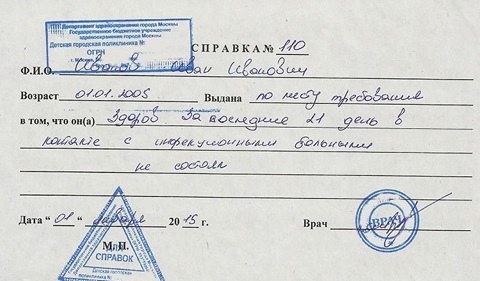 Департамент здравоохранения города Москвы
Государственное бюджетное учреждение
здравоохранения города Москвы
Детская городская поликлиника №
ОГРН
г. Москва,
СПРАВКА № 110
Ф.И.О. Иванов Иван Иванович
Возраст 01.01.2005 Выдана по месту требования
в том, что он(а) Здоров За последние 21 день в
контакте с инфекционными больными
не состоял
Дата "01" января 2015 г. Врач
ВРАЧ
М.П.
ДЛЯ
СПРАВОК